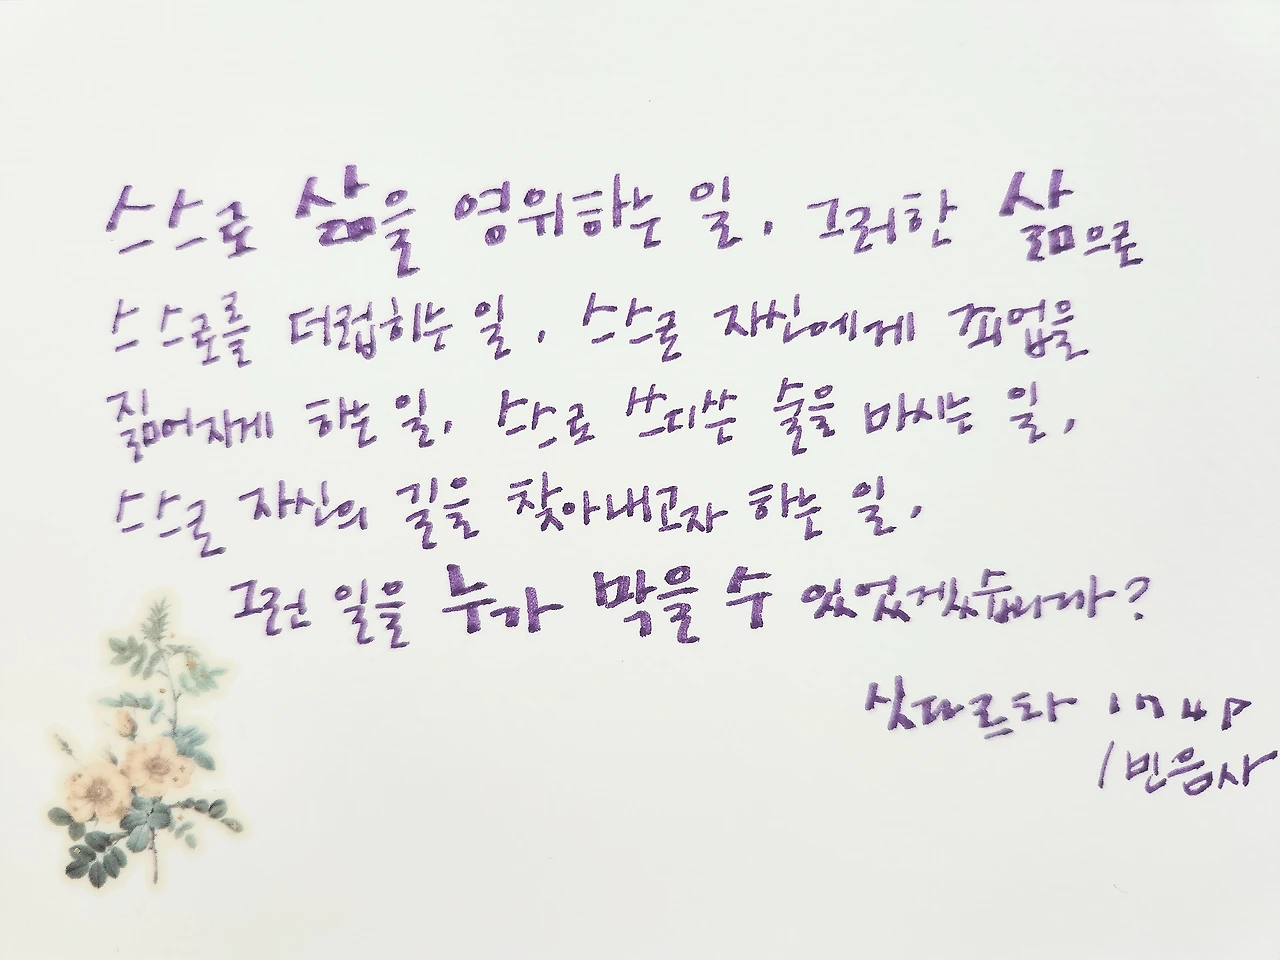 스스로 삶을 영위하는 일, 그러한 삶으로
스스로를 더럽히는 일, 스스로 자신에게 죄업을
짊어지게 하는 일, 스스로 쓰디쓴 술을 마시는 일,
스스로 자신의 길을 찾아내고자 하는 일,
그런 일을 누가 막을 수 있었겠습니까?
싯다르타 174P
/민음사